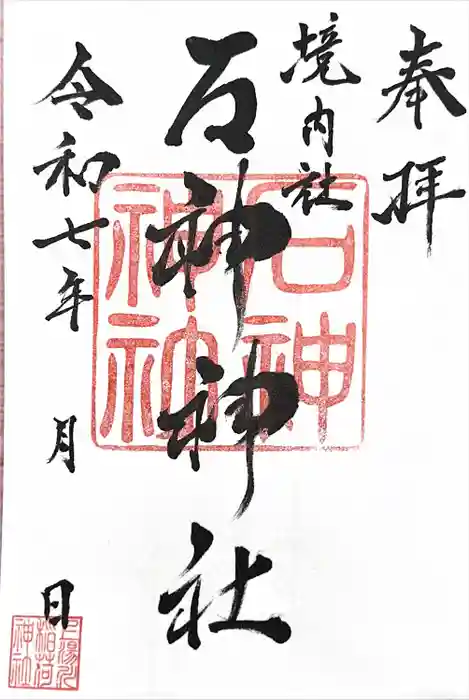 奉拝
境内社
石神神社
令和七年 月 日
石神
神社
稲荷
神社